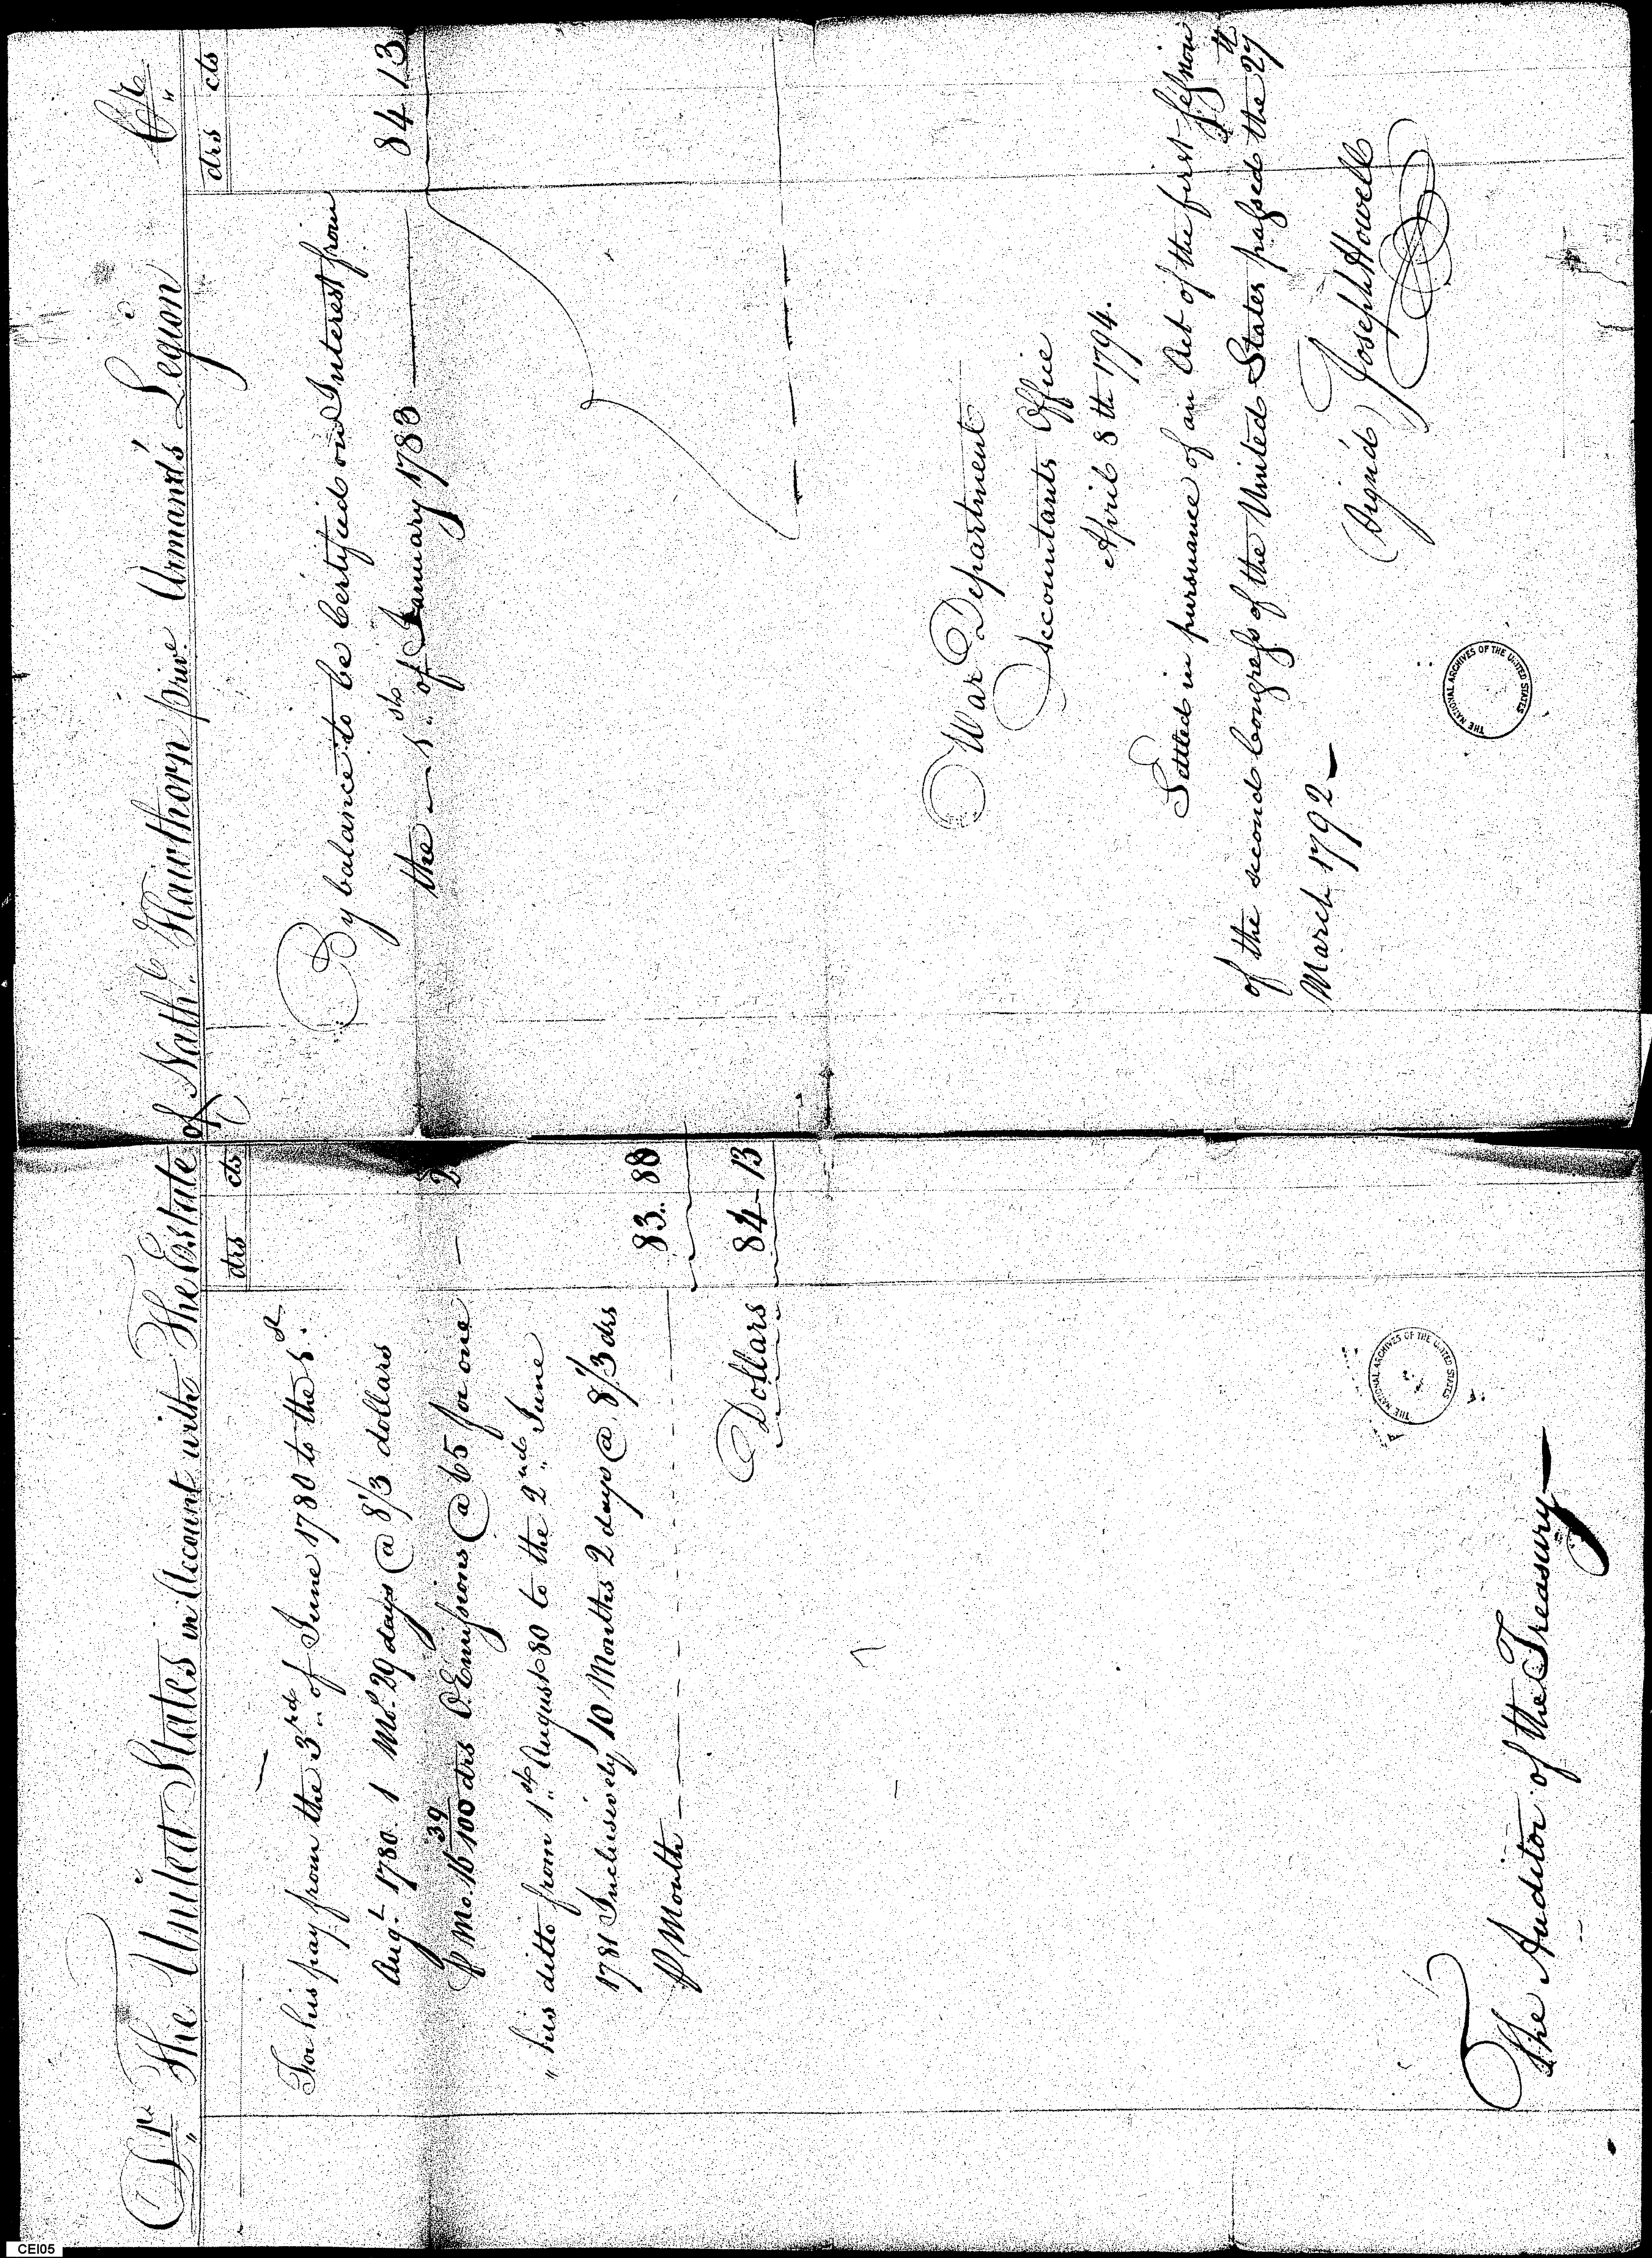 Dr. The United States in Account with The Estate of Nathl. Hawthorn priv.e Armand's Legion Cr.
drs cts
For his pay from the 3rd of June 1780 to the 1st
Augt. 1780. 1 Mo. 29 days @ 8 1/3 dollars
⅌ Mo. 16 39/100 drs O. Emissions @ 65 for one — 2
" his ditto from 1st August 80 to the 2nd June
1781 Inclusively 10 Months 2 days @ 8 1/3 drs
⅌ Month 83.. 88
Dollars 84-13
The Auditor of the Treasury
drs cts
By balance to be Certified on Interest from
the 1st of January 1783 84 13
War Department
Accountants Office
April 8th 1794.
Settled in pursuance of an Act of the first Session
of the second Congress of the United States passed the 27th
March 1792
(Signed) Joseph Howell
THE NATIONAL ARCHIVES OF THE UNITED STATES
THE NATIONAL ARCHIVES OF THE UNITED STATES
CEI05